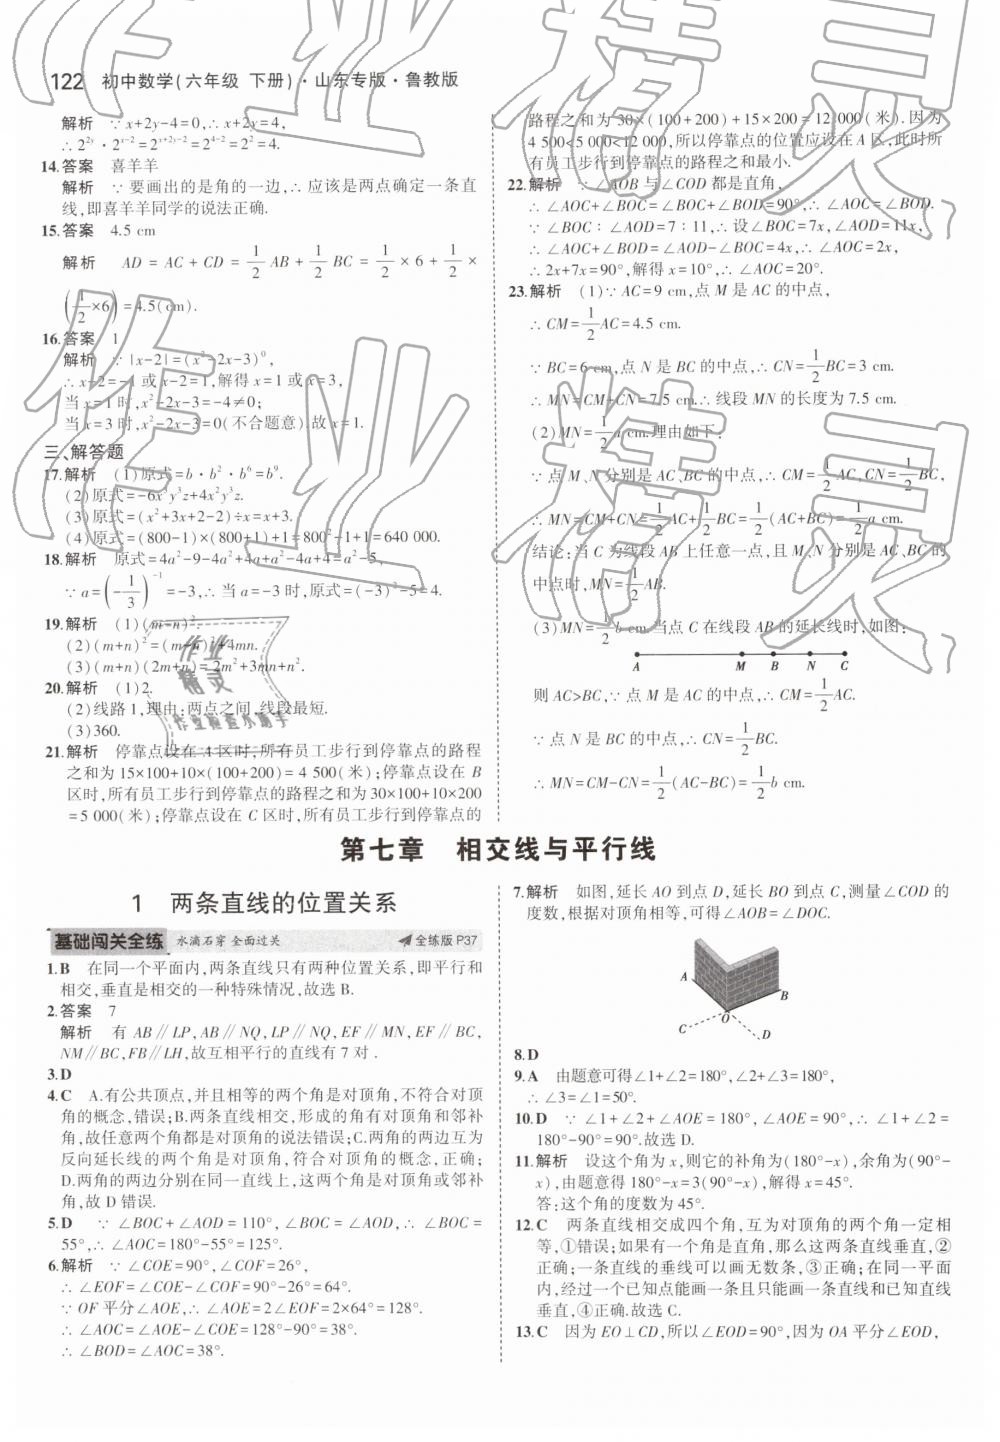 122 初中数学(六年级 下册)·山东专版·鲁教版
解析 ∵x+2y-4=0,∴x+2y=4,
∴2²ʸ·2ˣ⁻²=2ˣ⁺²ʸ⁻²=2⁴⁻²=2²=4.
14.答案 喜羊羊
解析 ∵要画出的是角的一边,∴应该是两点确定一条直
线,即喜羊羊同学的说法正确.
15.答案 4.5 cm
解析 AD=AC+CD=1/2AB+1/2BC=1/2×6+1/2×
(1/2×6)=4.5(cm).
16.答案 1
解析 ∵|x-2|=(x²-2x-3)⁰,
∴x-2=-1或x-2=1,解得x=1或x=3,
当x=1时,x²-2x-3=-4≠0;
当x=3时,x²-2x-3=0(不合题意).故x=1.
三、解答题
17.解析 (1)原式=b·b²·b⁶=b⁹.
(2)原式=-6x³y³z+4x²y³z.
(3)原式=(x²+3x+2-2)÷x=x+3.
(4)原式=(800-1)×(800+1)+1=800²-1+1=640 000.
18.解析 原式=4a²-9-4a²+4a+a²-4a+4=a²-5,
∵a=(-1/3)⁻¹=-3,∴当a=-3时,原式=(-3)²-5=4.
19.解析 (1)(m-n)².
(2)(m+n)²=(m-n)²+4mn.
(3)(m+n)(2m+n)=2m²+3mn+n².
20.解析 (1)2.
(2)线路1,理由:两点之间,线段最短.
(3)360.
21.解析 停靠点设在A区时,所有员工步行到停靠点的路程
之和为15×100+10×(100+200)=4 500(米);停靠点设在B
区时,所有员工步行到停靠点的路程之和为30×100+10×200
=5 000(米);停靠点设在C区时,所有员工步行到停靠点的
路程之和为30×(100+200)+15×200=12 000(米).因为
4 500<5 000<12 000,所以停靠点的位置应设在A区,此时所
有员工步行到停靠点的路程之和最小.
22.解析 ∵∠AOB与∠COD都是直角,
∴∠AOC+∠BOC=∠BOC+∠BOD=90°,∴∠AOC=∠BOD.
∵∠BOC∶∠AOD=7∶11,∴设∠BOC=7x,∠AOD=11x,
∴∠AOC+∠BOD=∠AOD-∠BOC=4x,∴∠AOC=2x,
∴2x+7x=90°,解得x=10°,∴∠AOC=20°.
23.解析 (1)∵AC=9 cm,点M是AC的中点,
∴CM=1/2AC=4.5 cm.
∵BC=6 cm,点N是BC的中点,∴CN=1/2BC=3 cm.
∴MN=CM+CN=7.5 cm.∴线段MN的长度为7.5 cm.
(2)MN=1/2a cm.理由如下:
∵点M、N分别是AC、BC的中点,∴CM=1/2AC,CN=1/2BC,
∴MN=CM+CN=1/2AC+1/2BC=1/2(AC+BC)=1/2a cm.
结论:当C为线段AB上任意一点,且M、N分别是AC、BC的
中点时,MN=1/2AB.
(3)MN=1/2b cm.当点C在线段AB的延长线时,如图:
A M B N C
则AC>BC,∵点M是AC的中点,∴CM=1/2AC.
∵点N是BC的中点,∴CN=1/2BC.
∴MN=CM-CN=1/2(AC-BC)=1/2b cm.
第七章 相交线与平行线
1 两条直线的位置关系
基础闯关全练 水滴石穿 全面过关 全练版P37
1.B 在同一个平面内,两条直线只有两种位置关系,即平行和
相交,垂直是相交的一种特殊情况,故选B.
2.答案 7
解析 有AB∥LP,AB∥NQ,LP∥NQ,EF∥MN,EF∥BC,
NM∥BC,FB∥LH,故互相平行的直线有7对.
3.D
4.C A.有公共顶点,并且相等的两个角是对顶角,不符合对顶
角的概念,错误;B.两条直线相交,形成的角有对顶角和邻补
角,故任意两个角都是对顶角的说法错误;C.两角的两边互为
反向延长线的两个角是对顶角,符合对顶角的概念,正确;
D.两角的两边分别在同一直线上,这两个角是对顶角或邻补
角,故D错误.
5.D ∵∠BOC+∠AOD=110°,∠BOC=∠AOD,∴∠BOC=
55°,∴∠AOC=180°-55°=125°.
6.解析 ∵∠COE=90°,∠COF=26°,
∴∠EOF=∠COE-∠COF=90°-26°=64°.
∵OF平分∠AOE,∴∠AOE=2∠EOF=2×64°=128°.
∴∠AOC=∠AOE-∠COE=128°-90°=38°.
∴∠BOD=∠AOC=38°.
7.解析 如图,延长AO到点D,延长BO到点C,测量∠COD的
度数,根据对顶角相等,可得∠AOB=∠DOC.
A
B
O
C
D
8.D
9.A 由题意可得∠1+∠2=180°,∠2+∠3=180°,
∴∠3=∠1=50°.
10.D ∵∠1+∠2+∠AOE=180°,∠AOE=90°,∴∠1+∠2=
180°-90°=90°.故选D.
11.解析 设这个角为x,则它的补角为(180°-x),余角为(90°-
x),由题意得180°-x=3(90°-x),解得x=45°.
答:这个角的度数为45°.
12.C 两条直线相交成四个角,互为对顶角的两个角一定相
等,①错误;如果有一个角是直角,那么这两条直线垂直,②
正确;一条直线的垂线可以画无数条,③正确;在同一平面
内,经过一个已知点能画一条且只能画一条直线和已知直线
垂直,④正确.故选C.
13.C 因为EO⊥CD,所以∠EOD=90°,因为OA平分∠EOD,
作业精灵
作业精灵